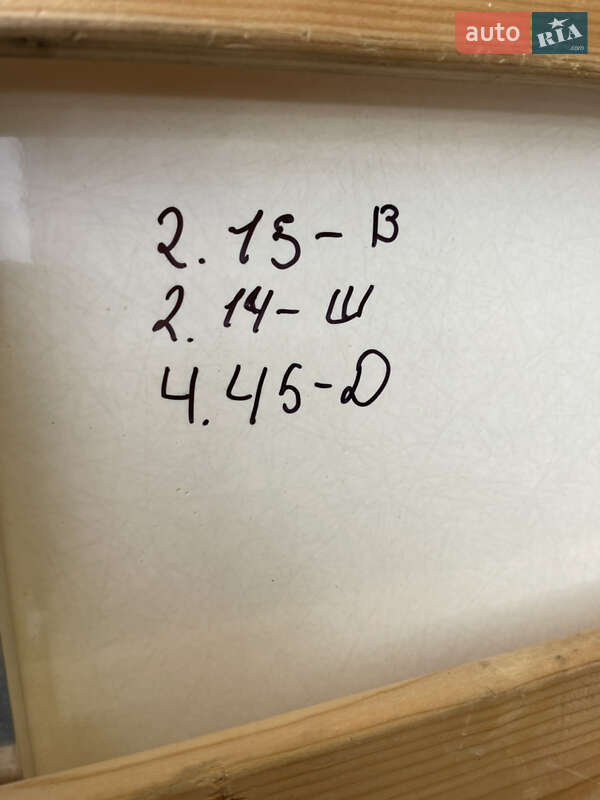 auto RIA.com
2.15-В
2.14-Ш
4.45-Д